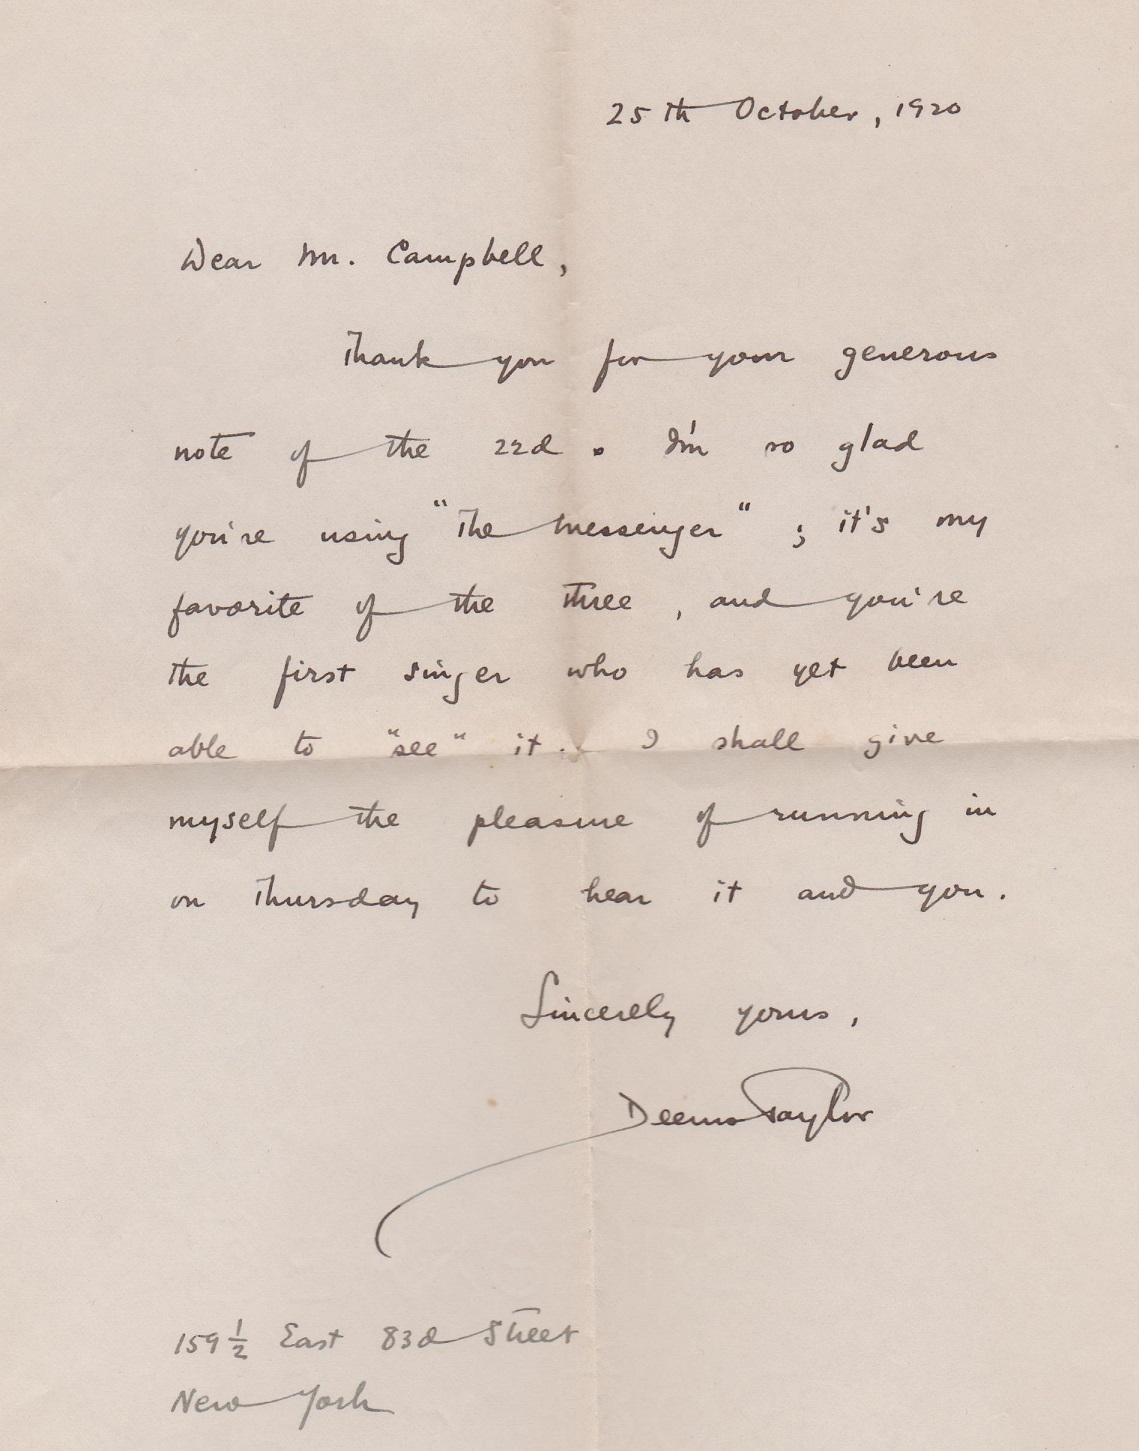 25th October, 1920
Dear Mr. Campbell,
Thank you for your generous
note of the 22d. I'm so glad
you're using "The Messenger"; it's my
favorite of the three, and you're
the first singer who has yet been
able to "see" it. I shall give
myself the pleasure of running in
on Thursday to hear it and you.
Sincerely yours,
Deems Taylor
159½ East 83d Street
New York